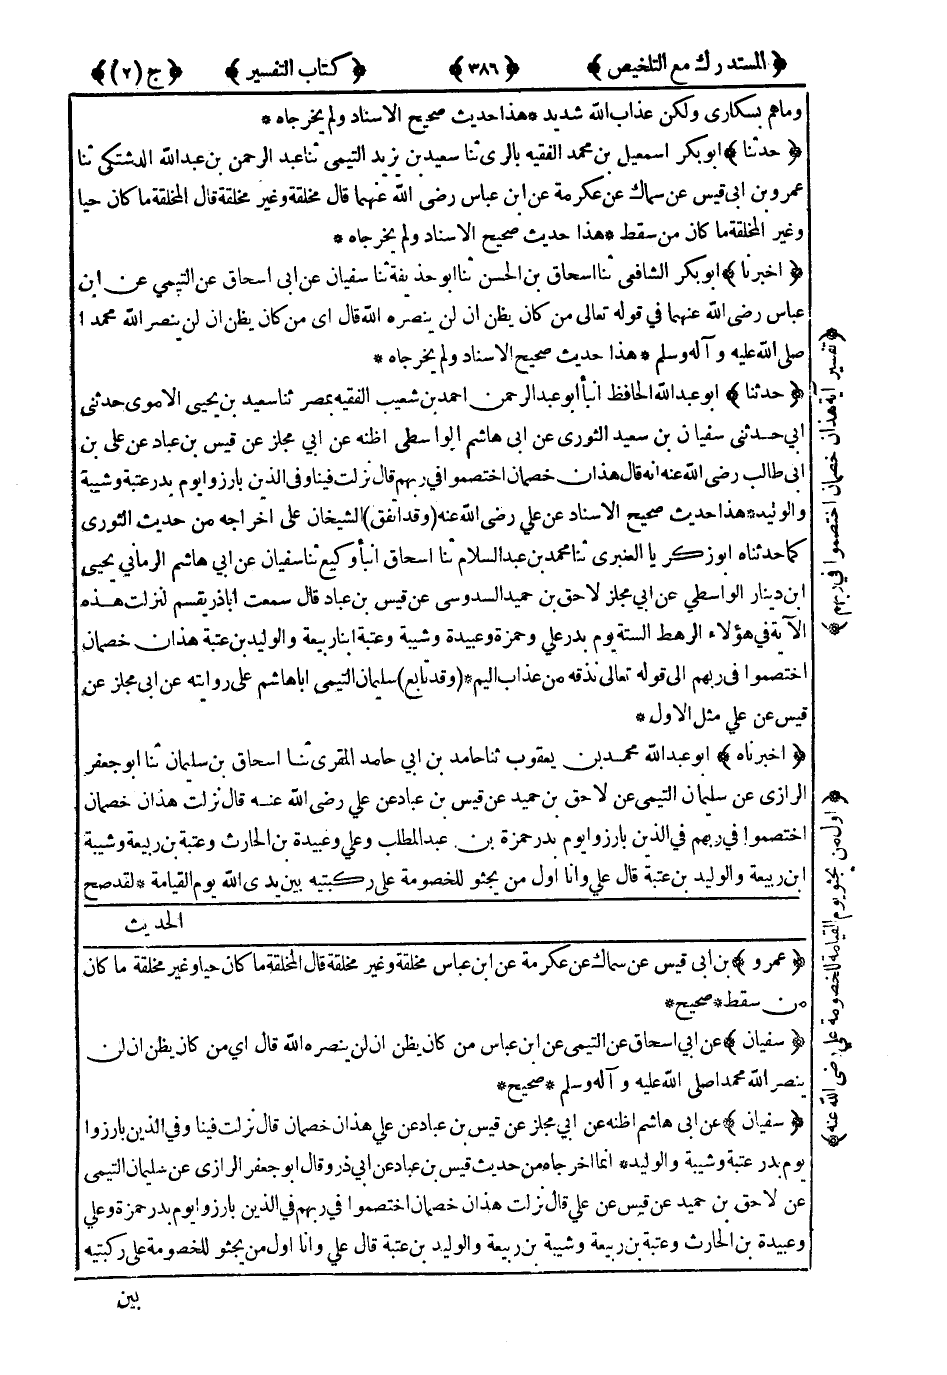 ﴿ المستدرك مع التلخيص ﴾ ﴿ ٣٨٦ ﴾ ﴿ كتاب التفسير ﴾ ﴿ ج (٢) ﴾
وماهم بسكارى ولكن عذاب الله شديد * هذا حديث صحيح الاسناد ولم يخرجاه *
﴿ حدثنا ﴾ ابو بكر اسمعيل بن محمد الفقيه بالرى ثنا سعيد بن يزيد التيمى ثنا عبد الرحمن بن عبدالله الدشتكى ثنا
عمرو بن ابى قيس عن سماك عن عكرمة عن ابن عباس رضى الله عنهما قال مخلقة وغير مخلقة قال المخلقة ما كان حيا
وغير المخلقة ما كان من سقط * هذا حديث صحيح الاسناد ولم يخرجاه *
﴿ اخبرنا ﴾ ابو بكر الشافعى ثنا اسحاق بن الحسن ثنا ابو حذيفة ثنا سفيان عن ابى اسحاق عن التيمي عن ابن
عباس رضى الله عنهما في قوله تعالى من كان يظن ان لن ينصره الله قال اى من كان يظن ان لن ينصر الله محمدا
صلى الله عليه و آله وسلم * هذا حديث صحيح الاسناد ولم يخرجاه *
﴿ حدثنا ﴾ ابو عبدالله الحافظ انبأ أبو عبدالرحمن احمد بن شعيب الفقيه بمصر ثنا سعيد بن يحيى الاموى حدثنى
ابي حدثنى سفيان بن سعيد الثورى عن ابى هاشم الواسطى اظنه عن ابي مجلز عن قيس بن عباد عن على بن
ابى طالب رضى الله عنه انه قال هذان خصمان اختصموا في ربهم قال نزلت فينا وفى الذين بارزوا يوم بدر عتبة وشيبة
والوليد * هذا حديث صحيح الاسناد عن علي رضى الله عنه (وقد اتفق) الشيخان على اخراجه من حديث الثورى
كما حدثناه ابو زكريا العنبرى ثنا محمد بن عبد السلام ثنا اسحاق انبأ وكيع ثنا سفيان عن ابي هاشم الرماني يحيى
ابن دينار الواسطي عن ابي مجلز لاحق بن حميد السدوسى عن قيس بن عباد قال سمعت اباذر يقسم لنزلت هذه
الآية في هؤلاء الرهط الستة يوم بدر علي وحمزة وعبيدة وشيبة وعتبة ابنا ربيعة والوليد بن عتبة هذان خصمان
اختصموا فى ربهم الى قوله تعالى نذقه من عذاب اليم * (وقد تابع) سليمان التيمى اباهاشم على روايته عن ابى مجلز عن
قيس عن علي مثل الاول *
﴿ اخبرناه ﴾ ابو عبدالله محمد بن يعقوب ثنا حامد بن ابي حامد المقرى ثنا اسحاق بن سليمان ثنا ابو جعفر
الرازى عن سليمان التيمى عن لاحق بن حميد عن قيس بن عباد عن علي رضى الله عنه قال نزلت هذان خصمان
اختصموا في ربهم في الذين بارزوا يوم بدر حمزة بن عبد المطلب وعلي وعبيدة بن الحارث وعتبة بن ربيعة وشيبة
ابن ربيعة والوليد بن عتبة قال علي وانا اول من يجثو للخصومة على ركبتيه بين يدى الله يوم القيامة * لقد صح
الحديث
﴿ عمرو ﴾ بن ابى قيس عن سماك عن عكرمة عن ابن عباس مخلقة وغير مخلقة قال المخلقة ما كان حيا وغير مخلقة ما كان
من سقط * صحيح *
﴿ سفيان ﴾ عن ابي اسحاق عن التيمى عن ابن عباس من كان يظن ان لن ينصره الله قال اي من كان يظن ان لن
ينصر الله محمدا صلى الله عليه و آله وسلم * صحيح *
﴿ سفيان ﴾ عن ابى هاشم اظنه عن ابي مجلز عن قيس بن عباد عن علي هذان خصمان قال نزلت فينا وفي الذين بارزوا
يوم بدر عتبة وشيبة والوليد * انما اخرجاه من حديث قيس بن عباد عن ابي ذر وقال ابو جعفر الرازى عن سليمان التيمى
عن لاحق بن حميد عن قيس عن علي قال نزلت هذان خصمان اختصموا في ربهم في الذين بارزوا يوم بدر حمزة وعلي
وعبيدة بن الحارث وعتبة بن ربيعة وشيبة بن ربيعة والوليد بن عتبة قال علي وانا اول من يجثو للخصومة على ركبتيه
بين
﴿ تفسير آية هذان خصمان اختصموا في ربهم ﴾
﴿ اول من يجثو يوم القيامة للخصومة علي رضى الله عنه ﴾